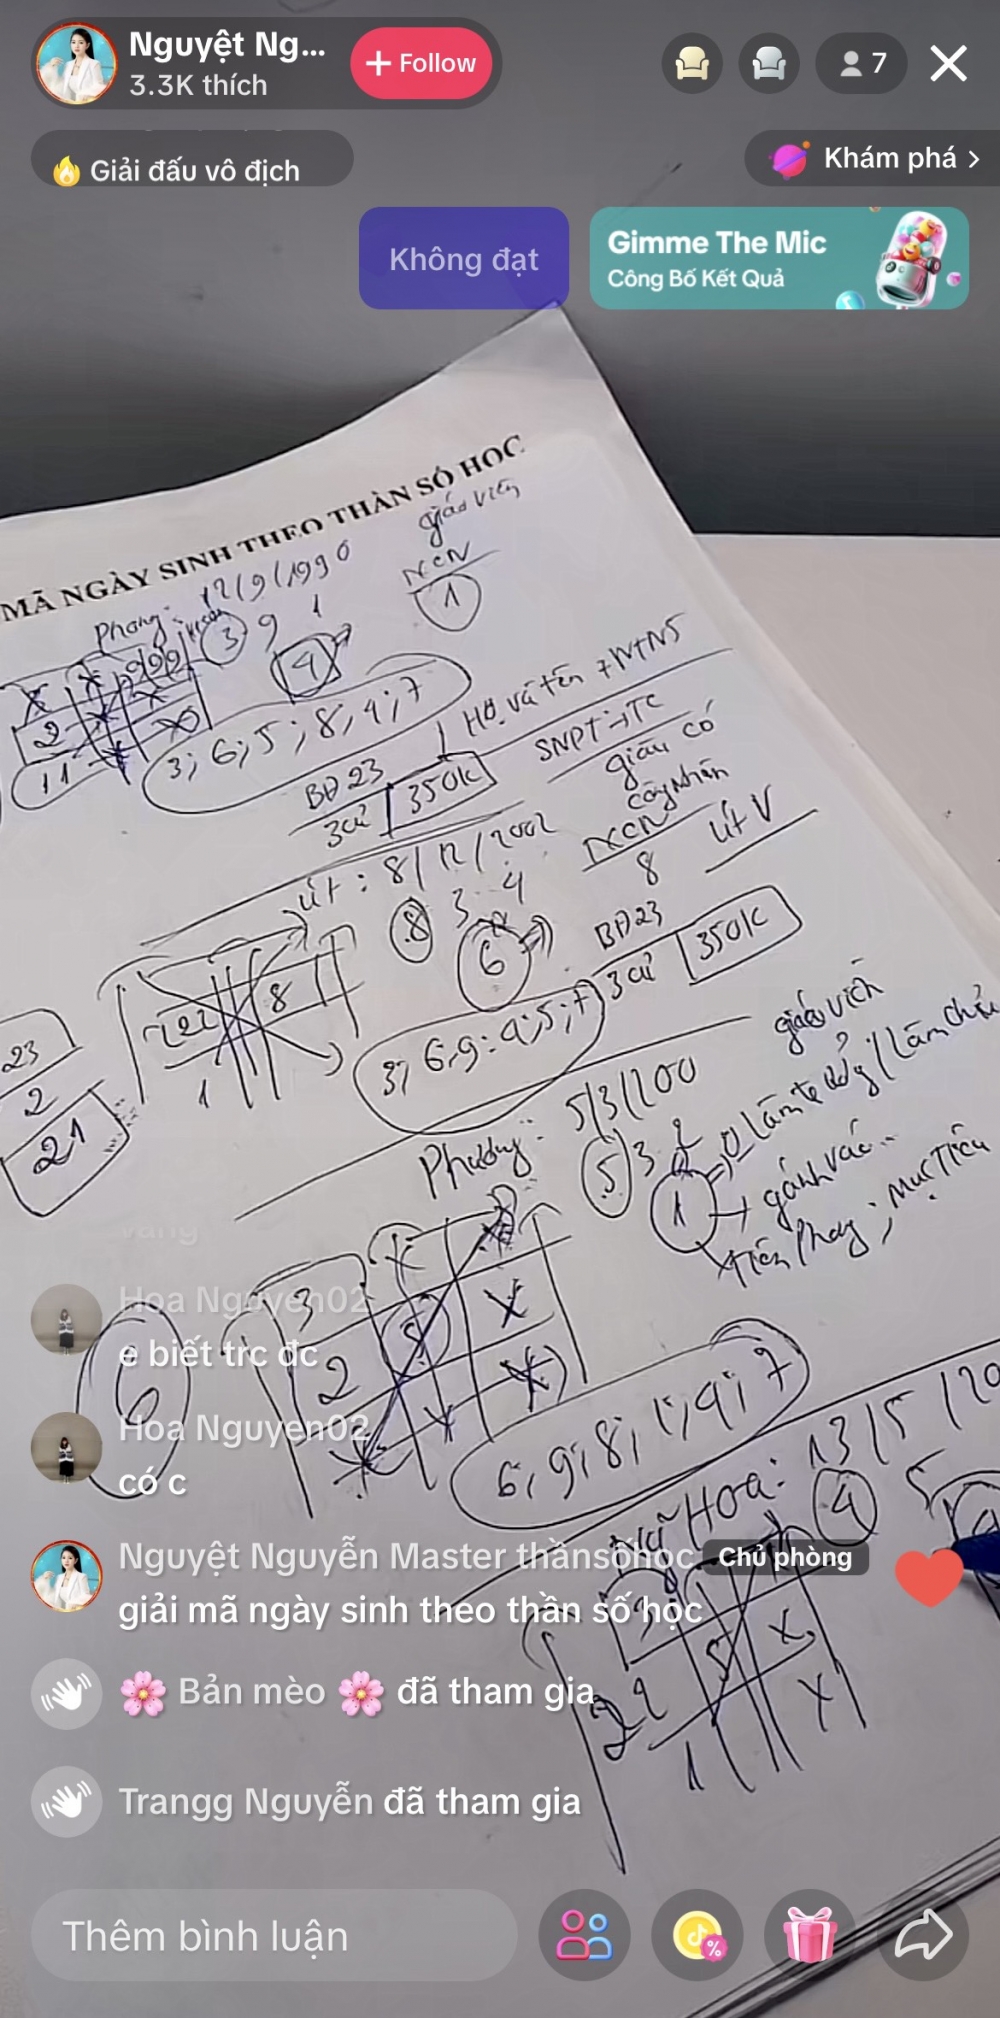 Nguyệt Ng...
3.3K thích
+ Follow
7
Giải đấu vô địch
Khám phá >
Không đạt
Gimme The Mic
Công Bố Kết Quả
MÃ NGÀY SINH THEO THẦN SỐ HỌC
giáo viên
Phong: 12/9/1990
NCN
3 9 1
1
4
2
11
3; 6; 5; 8; 4; 7
Họ và tên + NTNS
BĐ 23
350K
SNPT → TC
út: 8/12/2002
NCN
8
8 3 4
6
8
1
BĐ23
350K
23
2
21
3; 6; 9; 4; 5; 7
giáo viên
Phương: 5/3/100
5 3 2
1
gánh vác
Tiên Phong; Mục Tiêu
3
2 5
6
6; 9; 8; 1; 4; 7
Hoa: 13/5/20
4 5
3
5
1
vâng
Hoa Nguyen02
e biết trc đc
Hoa Nguyen02
có c
Nguyệt Nguyễn Master thầnsốhọc Chủ phòng
giải mã ngày sinh theo thần số học
🌸 Bản mèo 🌸 đã tham gia
Trangg Nguyễn đã tham gia
Thêm bình luận